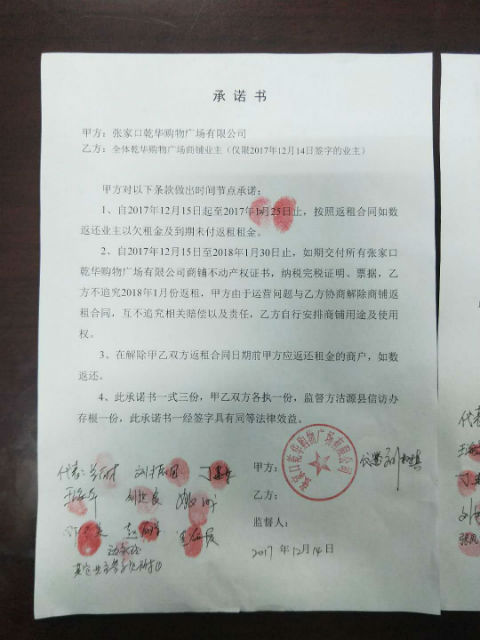 承诺书
甲方：张家口乾华购物广场有限公司
乙方：全体乾华购物广场商铺业主（仅限2017年12月14日签字的业主）
甲方对以下条款做出时间节点承诺：
1、自2017年12月15日起至2017年1月25日止，按照返租合同如数
返还业主以欠租金及到期未付返租租金。
2、自2017年12月15日至2018年1月30日止，如期交付所有张家口
乾华购物广场有限公司商铺不动产权证书，纳税完税证明、票据，乙
方不追究2018年1月份返租，甲方由于运营问题与乙方协商解除商铺返
租合同，互不追究相关赔偿以及责任，乙方自行安排商铺用途及使用
权。
3、在解除甲乙双方返租合同日期前甲方应返还租金的商户，如数
返还。
4、此承诺书一式三份，甲乙双方各执一份，监督方沽源县信访办
存根一份，此承诺书一经签字具有同等法律效益。
代表：
甲方：
张家口乾华购物广场有限公司
乙方：
监督人：
2017年12月14日
代表